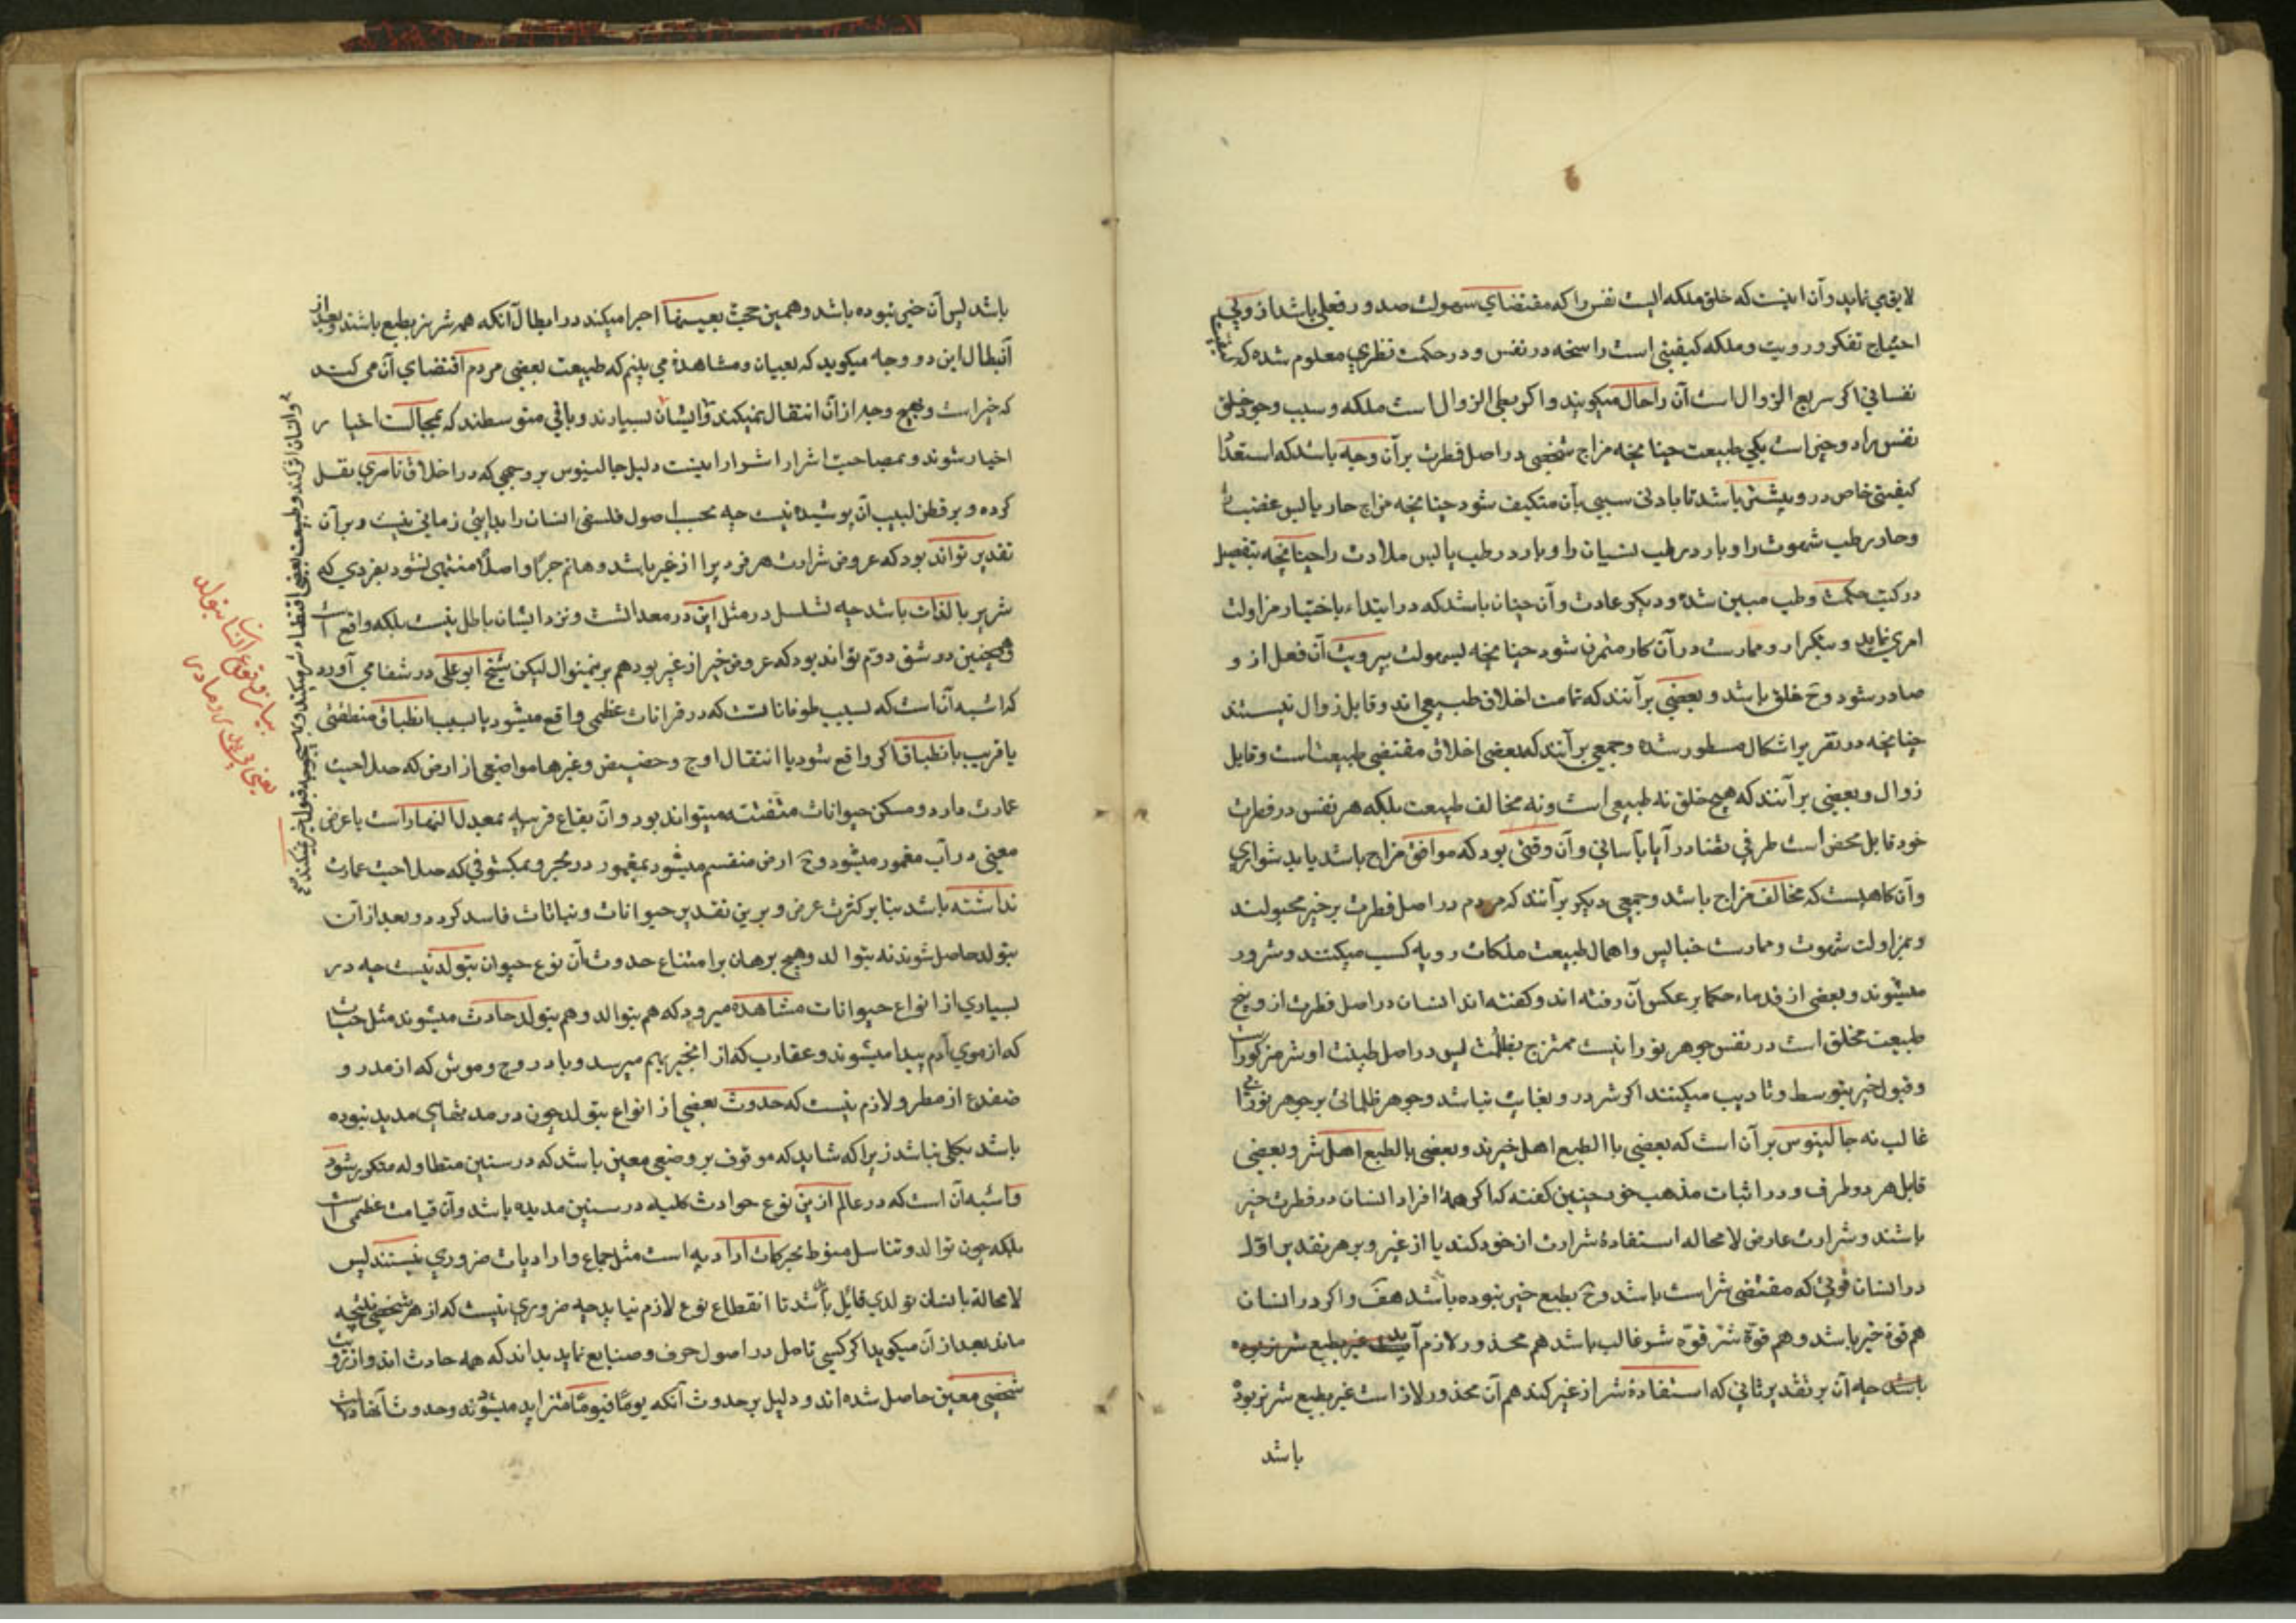 لایق می نماید و آن اینست که خلق ملکه ایست نفس را که مقتضای سهولت صدور فعلی باشد از وی بی
احتیاج تفکر و رویت و ملکه کیفیتی است راسخه در نفس و در حکمت نظری معلوم شده که کیفیات
نفسانی اگر سریع الزوال است آن را حال میکویند و اکر بطی الزوال است ملکه و سبب وجود خلق
نفس را دو چیز است یکی طبیعت چنانچه مزاج شخصی در اصل فطرت بر آن وجه باشد که استعداد
کیفیتی خاص در و بیشتر باشد تا بادنی سببی بآن متکیف شود چنانچه مزاج حار یابس غضب را
و حار رطب شهوت را و بارد رطب نسیان را و بارد یابس ملادت را چنانچه بتفصیل
در کتب حکمت و طب مبین شده و دیکر عادت و آن چنان باشد که در ابتداء باختیار مزاولت
امری نماید و بتکرار و ممارست در آن کار متمرن شود چنانچه بسهولت بیرویت آن فعل از و
صادر شود و ح خلق باشد و بعضی بر آنند که تمامت اخلاق طبیعی اند و قابل زوال نیستند
چنانچه در تقریر اشکال مسطور شده و جمعی بر آنند که بعضی اخلاق مقتضی طبیعت است و قابل
زوال و بعضی بر آنند که هیچ خلق نه طبیعی است و نه مخالف طبیعت بلکه هر نفس در فطرت
خود قابل محض است طرفی تضاد را یا بآسانی و آن وقتی بود که موافق مزاج باشد یا بدشواری
و آن کاهیست که مخالف مزاج باشد و جمعی دیکر بر آنند که مردم در اصل فطرت بر خیر مجبولند
و بمزاولت شهوت و ممارست خبایس و اهمال طبیعت ملکات رویه کسب میکنند و شرور
میشوند و بعضی از قدماء حکما بر عکس آن رفته اند و کفته اند انسان در اصل فطرت از وسخ
طبیعت مخلق است در نفس جوهر نورانیست ممتزج بظلمت پس در اصل طینت او شر مرکوز است
و قبول خیر بتوسط و تادیب میکنند اکر شر در و بغایت نباشد و جوهر ظلمانی بر جوهر نورانی
غالب نه جالینوس بر آن است که بعضی باالطبع اهل خیرند و بعضی بالطبع اهل شر و بعضی
قابل هر دو طرف و در اثبات مذهب خود چنین کفته که اکر همهٔ افراد انسان در فطرت خیر
باشند و شرارت عارض لا محاله استفادهٔ شرارت از خود کند یا از غیر و بر هر تقدیر اول
در انسان قوتی که مقتضی شر است باشد و ح بطبع خیر نبوده باشد هف و اکر در انسان
هم قوة خیر باشد و هم قوّة شر قوّه شر غالب باشد هم محذور لازم آید
باشد چه آن بر تقدیر ثانی که استفادهٔ شر از غیر کند هم آن محذور لازم است غیر بطبع شریر بوده
باشد
باشد پس آن خیر نبوده باشد و همین حجت بعینها اجرا میکند در ابطال آنکه همه شریر بطبع باشند و بعد از
ابطال این دو وجه میکوید که بعیان و مشاهدهٔ می بینم که طبیعت بعضی مردم اقتضای آن می کند
که خیر است و بهیچ وجه از آن انتقال نمیکند و ایشان بسیارند و باقی متوسطند که بمجالست اخیار
اخیار شوند و بمصاحبت اشرار اشرار اینست دلیل جالینوس بر وجهی که در اخلاق ناصری نقل
کرده و بر فطن لبیب آن پوشیده نیست چه بحسب اصول فلسفی انسان را بدایتی زمانی نیست و بر آن
تقدیر تواند بود که عروض شرارت هر فرد یرا از غیر باشد و هلم جرّا و اصلا منتهی نشود بفردی که
شریر بالذات باشد چه تسلسل در مثل این در معد است و نزد ایشان باطل نیست بلکه واقع است
و همچنین در شق دوم تواند بود که عروض خیر از غیر بود هم برینمنوال لیکن شیخ ابو علی در شفا می آورد
که اشبه آن است که بسبب طوفانات که در قرانات عظمی واقع میشود یا بسبب انطباق منطقتین
یا قریب بانطباق اکر واقع شود یا انتقال اوج و حضیض و غیرها مواضعی از ارض که صلاحیت
عمارت دارد و مسکن حیوانات متنفسه میتواند بود و آن بقاع قریبه بمعدل النهار است با عرض
معینی در آب مغمور میشود و ح ارض منقسم میشود بمغمور در بحر و بمکشوفی که صلاحیت عمارت
نداشته باشد بنا بر کثرت عرض و برین تقدیر حیوانات و نباتات فاسد کردد و بعد از آن
بتولد حاصل شوند نه بتوالد و هیچ برهان بر امتناع حدوث آن نوع حیوان بتولد نیست چه در
بسیاری از انواع حیوانات مشاهده میرود که هم بتوالد و هم بتولد حادث میشوند مثل حیات
که از موی آدم پیدا میشوند و عقارب که از انجیر بهم میرسد و بادروج و موش که از مدر و
ضفدع از مطر و لازم نیست که حدوث بعضی از انواع بتولد چون در مدتهای مدید نبوده
باشد بکلی نباشد زیرا که شاید که موقوف بر وضعی معین باشد که در سنین متطاوله متکرر شود
و اشبه آن است که در عالم ازین نوع حوادث کلیه در سنین مدیده باشد و آن قیامت عظمی است
بلکه چون توالد و تناسل منوط بحرکات ارادیه است مثل جماع و ارادیات ضروری نیستند پس
لا محالة بانسان تولدی قائل باشد تا انقطاع نوع لازم نیاید چه ضروری نیست که از هر شخصی نتیجه
ماند بعد از آن میکوید اکر کسی تامل در اصول حرف و صنایع نماید بداند که همه حادث اند و از رویت
شخصی معین حاصل شده اند و دلیل بر حدوث آنکه یوما فیوما متزاید میشوند و حدوث آنها
و انسان اثر کند و طبیعت بعضی اقتضاء شر میکند و بهیچ وجه قبول خیر نمیکند صح
بیان وقوع انسان بتولد
یعنی بی پدر و مادر